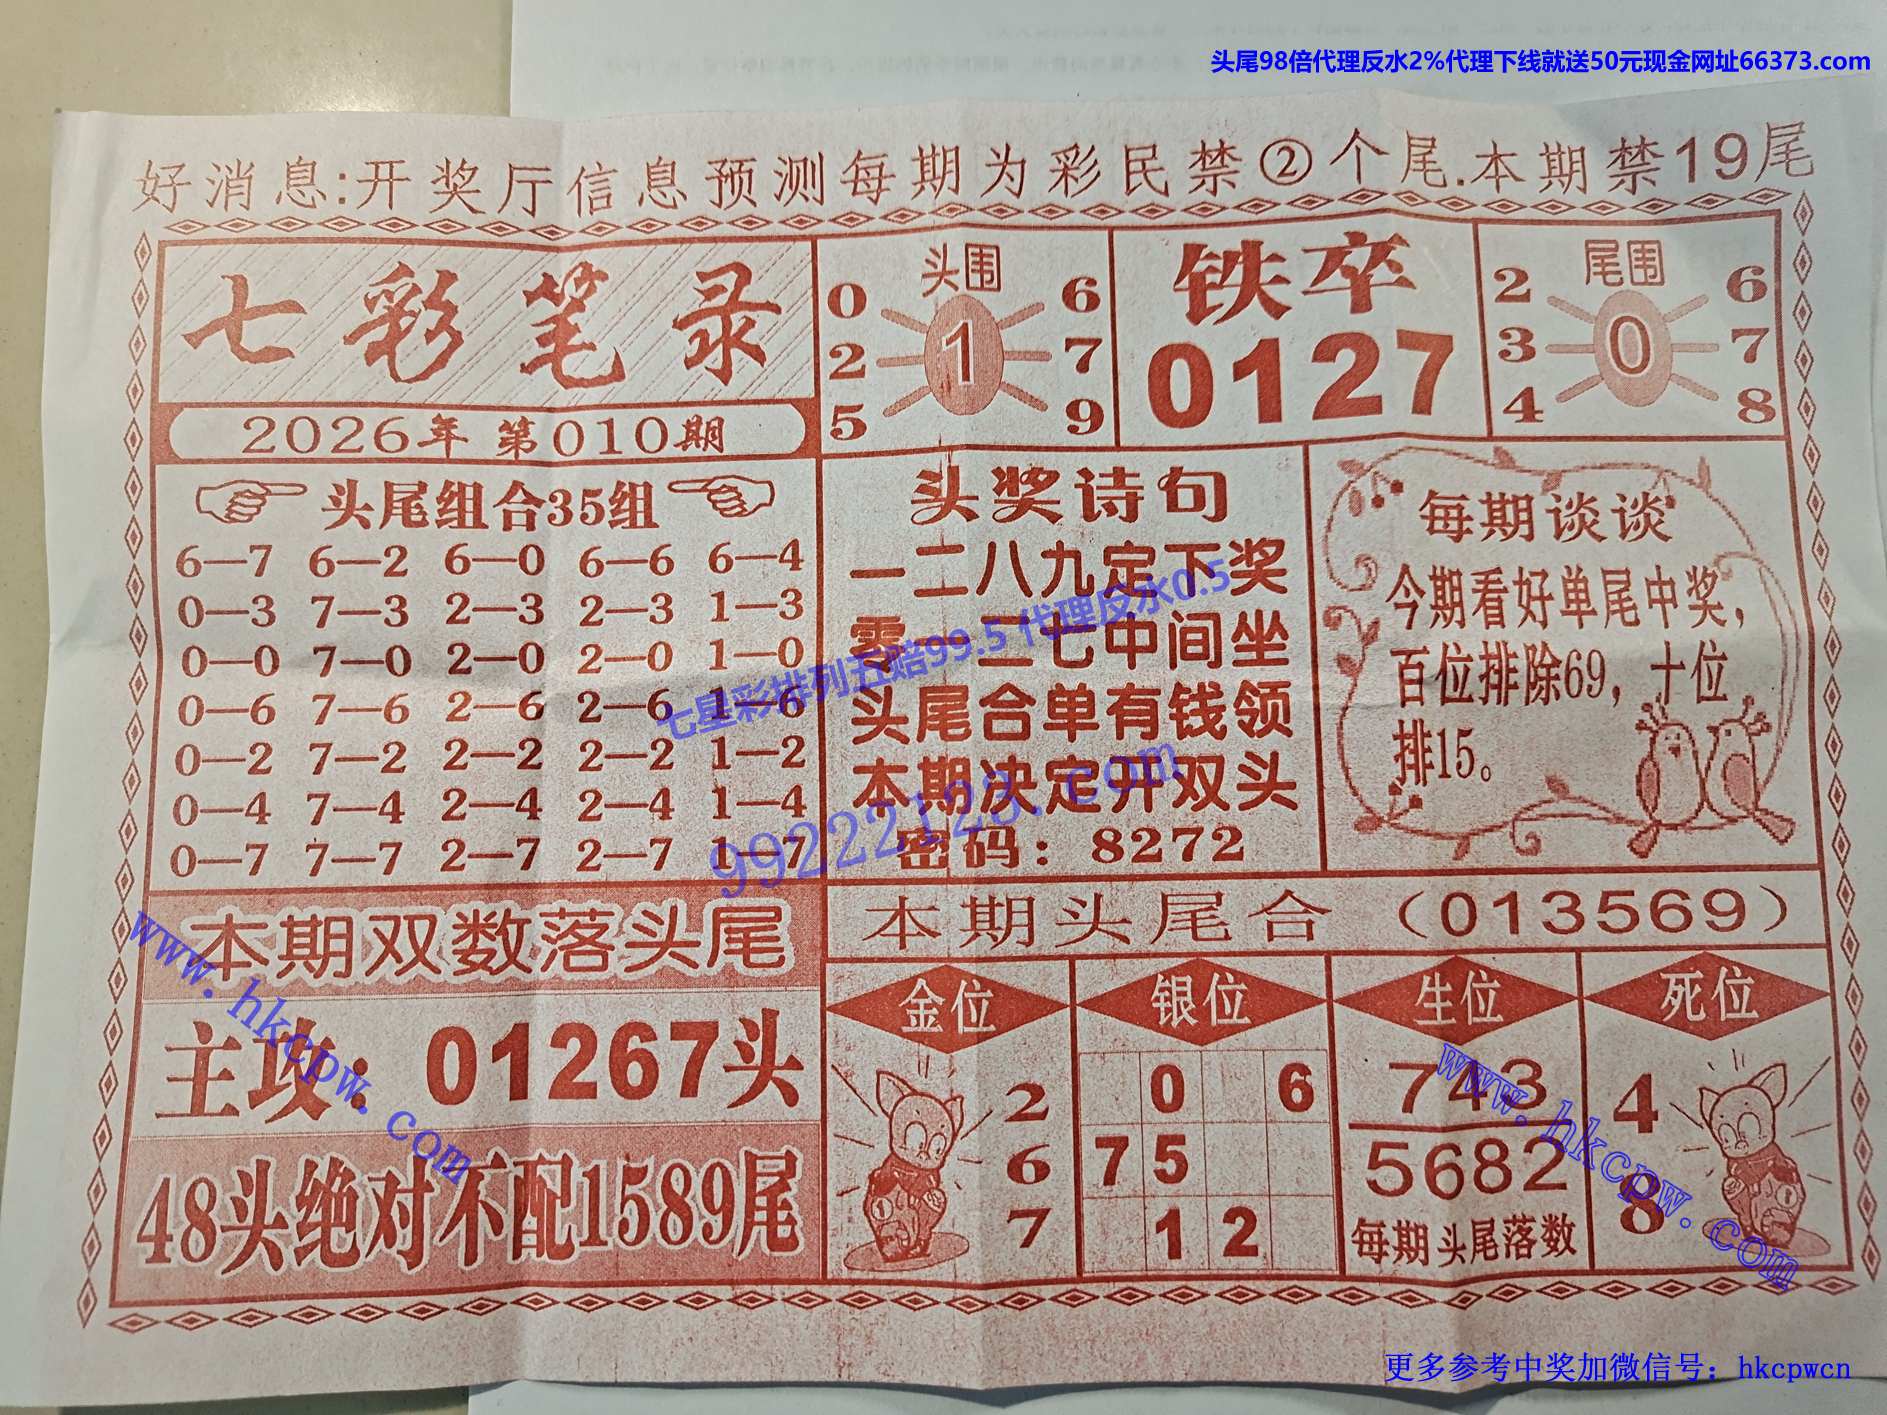 头尾98倍代理反水2%代理下线就送50元现金网址66373.com
好消息:开奖厅信息预测每期为彩民禁②个尾.本期禁19尾
七彩笔录
2026年 第010期
头围
0 6
2 1 7
5 9
铁卒
0127
尾围
2 6
3 0 7
4 8
头尾组合35组
6—7 6—2 6—0 6—6 6—4
0—3 7—3 2—3 2—3 1—3
0—0 7—0 2—0 2—0 1—0
0—6 7—6 2—6 2—6 1—6
0—2 7—2 2—2 2—2 1—2
0—4 7—4 2—4 2—4 1—4
0—7 7—7 2—7 2—7 1—7
头奖诗句
一二八九定下奖
零一二七中间坐
头尾合单有钱领
本期决定开双头
密码：8272
七星彩排列五赔99.5 代理反水0.5
99222123.com
每期谈谈
今期看好单尾中奖，
百位排除69，十位
排15。
本期双数落头尾
主攻：01267头
48头绝对不配1589尾
www.hkcpw.com
本期头尾合（013569）
金位
2
6
7
银位
0 6
7 5
1 2
生位
743
5682
每期头尾落数
死位
4
8
www.hkcpw.com
更多参考中奖加微信号：hkcpwcn